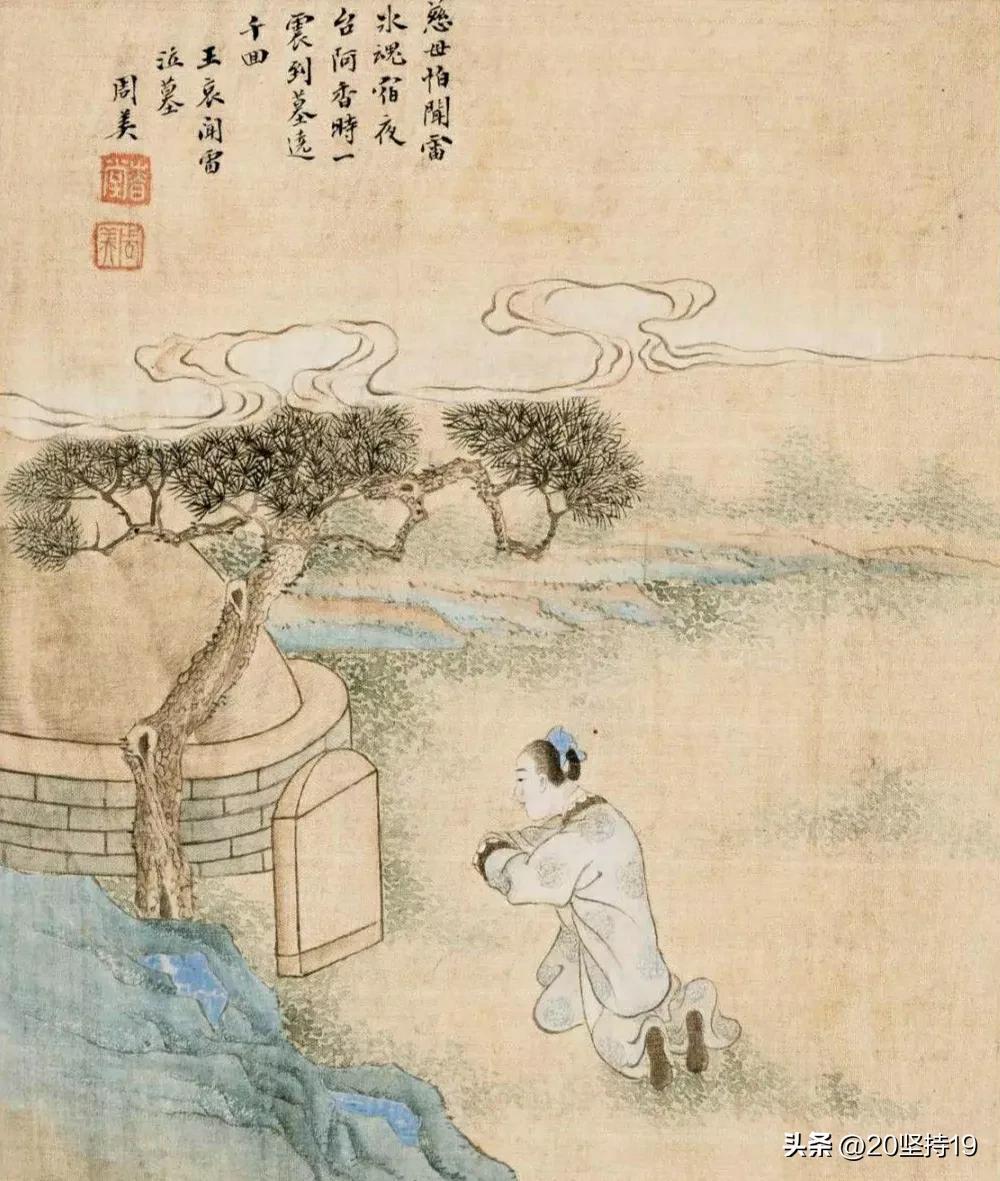 慈母怕聞雷
氷魂宿夜
台阿香時一
震到墓遶
千囬
王裒聞雷
泣墓
周美
周美
头条 @20坚持19